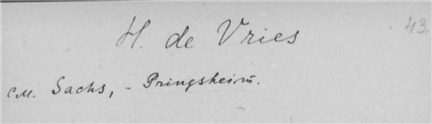 43.
H. de Vries
см. Sachs, - Pringsheim.